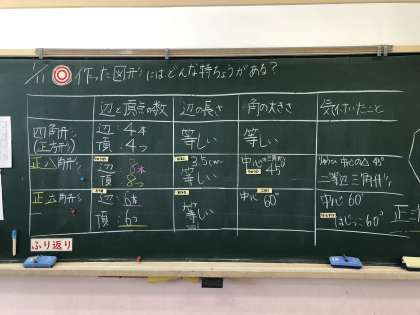 1/11 作った図形にはどんな特ちょうがある?
辺と頂点の数 辺の長さ 角の大きさ 気づいたこと
四角形 (正方形) 辺:4本 頂:4つ 等しい 等しい
正八角形 辺:8本 頂:8つ 3.5cm 等しい 中心 45° 45° 二等辺三角形
正六角形 辺:6本 頂:6つ 等しい 中心 60° 中心 60° はしっこ60° 正三
ふり返り